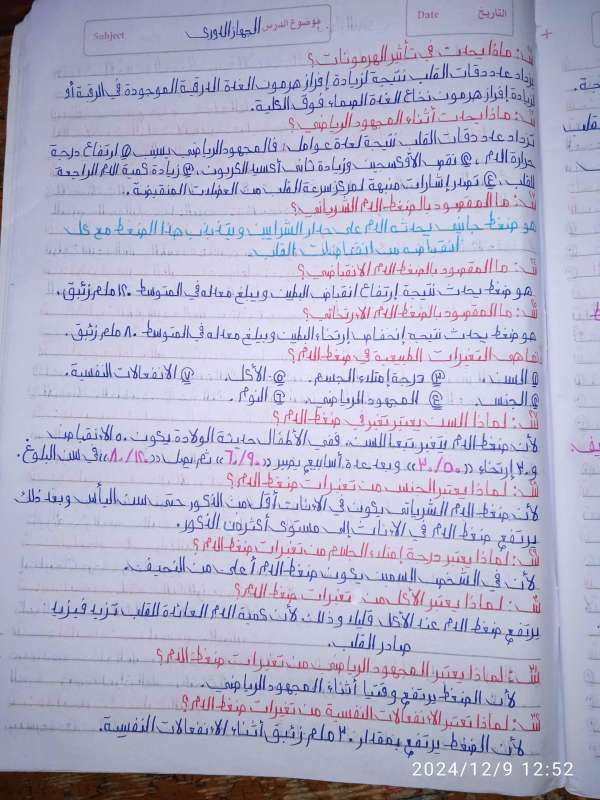 Subject موضوع الدرس الجهاز الدوري
Date التاريخ
س: ماذا يحدث في تأثير الهرمونات؟
يزداد عدد دقات القلب نتيجة لزيادة إفراز هرمون الغدة الدرقية الموجودة في الرقبة أو
لزيادة إفراز هرمون نخاع الغدة الصماء فوق الكلية.
س: ماذا يحدث أثناء المجهود الرياضي؟
تزداد عدد دقات القلب نتيجة لعدة عوامل، فالمجهود الرياضي يسبب ① ارتفاع درجة
حرارة الدم، ② نقص الأوكسجين وزيادة ثاني أكسيد الكربون، ③ زيادة كمية الدم الراجعة
للقلب، ④ تصدر إشارات منبهة لمركز سرعة القلب من العضلات المنقبضة.
س: ما المقصود بالضغط الدم الشرياني؟
هو ضغط جانبي يحدثه الدم على جدار الشرايين ويتذبذب هذا الضغط مع كل
انقباضه من انقباضات القلب.
س: ما المقصود بالضغط الدم الانقباضي؟
هو ضغط يحدث نتيجة إرتفاع انقباض البطين ويبلغ معدله في المتوسط ١٢٠ ملم زئبق.
س: ما المقصود بالضغط الدم الارتخائي؟
هو ضغط يحدث نتيجة إنخفاض إرتخاء البطين ويبلغ معدله في المتوسط ٨٠ ملم زئبق.
ما هي التغيرات الطبيعية في ضغط الدم؟
① السن. ③ درجة إمتلاء الجسم. ⑤ الأكل. ⑦ الانفعالات النفسية.
② الجنس. ④ المجهود الرياضي. ⑥ النوم.
س: لماذا السن يعتبر تغير في ضغط الدم؟
لأن ضغط الدم يتغير تبعا للسن، ففي الأطفال حديثة الولادة يكون ٥٠ الانقباض
و ٣٠ إرتخاء ((٣٠/٥٠)) وبعد عدة أسابيع يصير ((٦٠/٩٠)) ثم يصل ((٨٠/١٢٠)) في سن البلوغ.
س: لماذا يعتبر الجنس من تغيرات ضغط الدم؟
لأن ضغط الدم الشرياني يكون في الاناث أقل من الذكور حتى سن اليأس وبعد ذلك
يرتفع ضغط الدم في الاناث إلى مستوى أكثر من الذكور.
س: لماذا يعتبر درجة إمتلاء الجسم من تغيرات ضغط الدم؟
لأن في الشخص السمين يكون ضغط الدم أعلى من النحيف.
س: لماذا يعتبر الأكل من تغيرات ضغط الدم؟
يرتفع ضغط الدم عند الأكل قليلا وذلك لأن كمية الدم العائدة القلب تزيد فيزيد
صادر القلب.
س: لماذا يعتبر المجهود الرياضي من تغيرات ضغط الدم؟
لأن الضغط يرتفع وقتيا أثناء المجهود الرياضي.
س: لماذا تعتبر الانفعالات النفسية من تغيرات ضغط الدم؟
لأن الضغط يرتفع بمقدار ٣٠ ملم زئبق أثناء الانفعالات النفسية.
2024/12/9 12:52